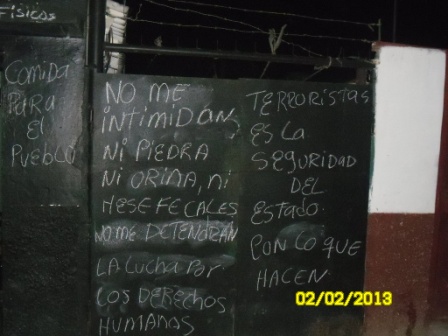 Físicos
COMIDA
PARA
El
PUEBLO
NO ME
iNTiMiDAN,
Ni PiEDRA
Ni ORiNA, ni
HESE FECALES
NO ME DETENDRAN
LA LUCHA POR
LOS DERECHOS
HUMANOS
TERRORISTAS
ES LA
SEGURiDAD
DEL
ESTADO.
PON LO QUE
HACEN
02/02/2013